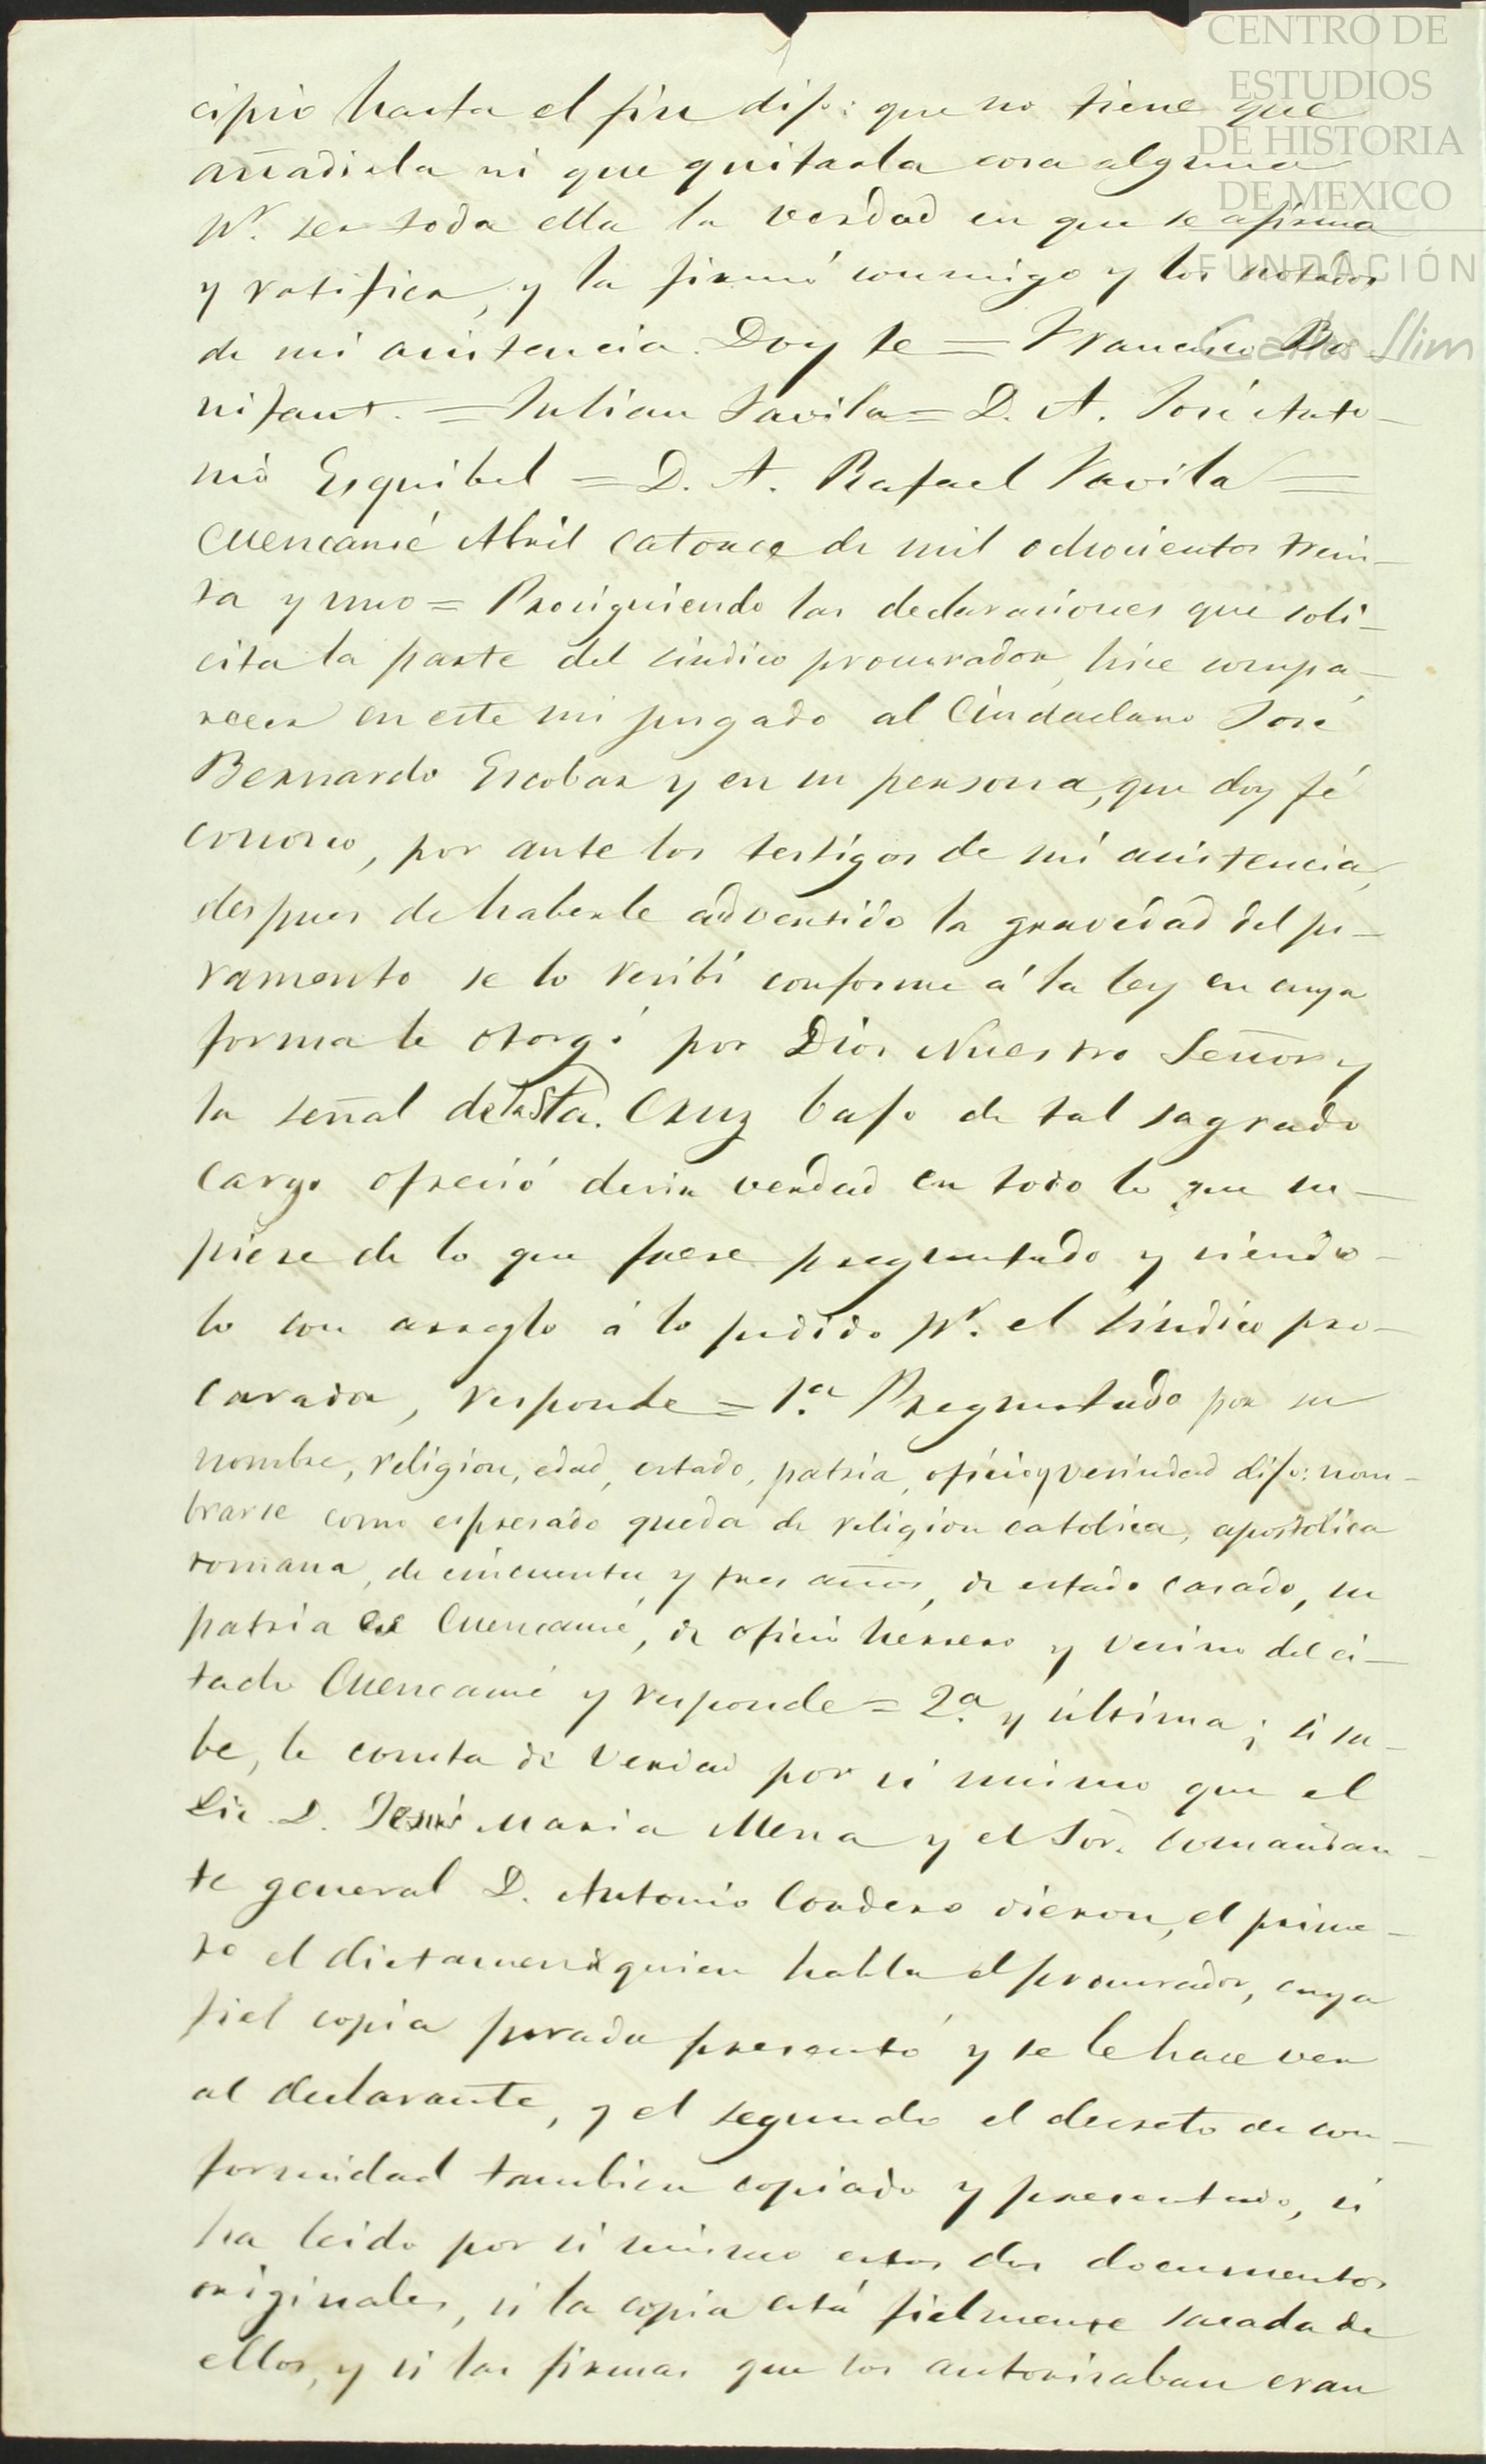 CENTRO DE
ESTUDIOS
DE HISTORIA
DE MEXICO
FUNDACIÓN
Carlos Slim
cipio hasta el fin dijo: que no tiene que
añadirla ni que quitarla cosa alguna
pr. ser toda ella la verdad en que se afirma
y ratifica, y la firmó conmigo y los notados
de mi asistencia. Doy fe = Francisco Bo-
nifant. = Julian Favila = D. A. José Anto-
nio Esquibel = D. A. Rafael Favila =
Cuencamé Abril catorce de mil ochocientos trein-
ta y uno = Prosiguiendo las declaraciones que soli-
cita la parte del síndico procurador, hice compa-
recer en este mi juzgado al Ciudadano José
Bernardo Escobar y en su persona, que doy fé
conosco, por ante los testigos de mi asistencia,
despues de haberle advertido la gravedad del ju-
ramento se lo recibí conforme á la ley en cuya
forma le otorgó por Dios Nuestro Señor y
la señal de la Sta. Cruz bajo de tal sagrado
cargo ofreció decir verdad en todo lo que su-
piere de lo que fuere preguntado y siendo-
lo con arreglo á lo pedido pr. el síndico pro-
curador, responde = 1.a Preguntado por su
nombre, religion, edad, estado, patria, oficio y vecindad dijo: nom-
brarse como espresado queda de religion catolica, apostolica
romana, de cincuenta y tres años, de estado casado, su
patria es Cuencamé, de oficio herrero y vecino del ci-
tado Cuencamé y responde = 2.a y última; si sa-
be, le consta de verdad por si mismo que el
Lic. D. Jesús Maria Mena y el Sor. Comandan-
te general D. Antonio Cordero dieron, el prime-
ro el dictamen á quien habla el procurador, cuya
fiel copia jurada presentó y se le hace ver
al declarante, y el segundo el decreto de con-
formidad tambien copiado y presentado, si
ha leido por si mismo estos dos documentos
originales, si la copia está fielmente sacada de
ellos, y si las firmas que los autorisaban eran